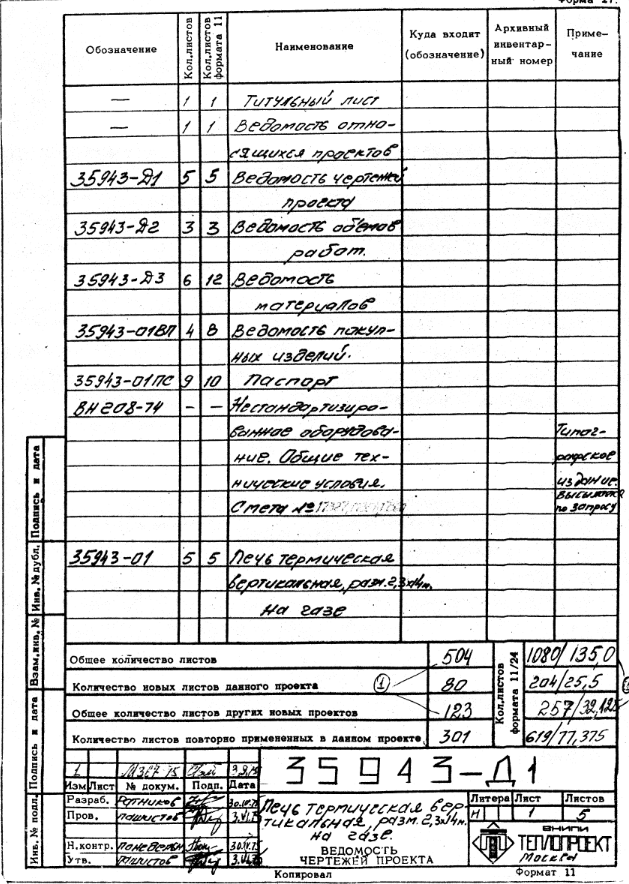 Форма 27.
Обозначение Кол.листов Кол.листов формата 11 Наименование Куда входит (обозначение) Архивный инвентарный номер Примечание
— 1 1 Титульный лист
— 1 1 Ведомость отно-
сящихся проектов
35943-Д1 5 5 Ведомость чертежей
проекта
35943-Д2 3 3 Ведомость объемов
работ.
35943-Д3 6 12 Ведомость
материалов
35943-01ВП 4 8 Ведомость покуп-
ных изделий.
35943-01ПС 9 10 Паспорт
ВН208-74 — — Нестандартизиро-
ванное оборудова- Типог-
ние. Общие тех- рафское
нические условия. издание.
Смета № Высылка по запросу
35943-01 5 5 Печь термическая
вертикальная, разм. 2,3х14м.
на газе
Общее количество листов 504 1080/135,0
Количество новых листов данного проекта 1 80 204/25,5
Общее количество листов других новых проектов 123 257/32,125
Количество листов повторно примененных в данном проекте 301 619/77,375
Кол.листов формата 11/24
1 3.9.75
Изм Лист № докум. Подп. Дата
35943-Д1
Разраб.
Пров. Пашистов
Н.контр.
Утв. Пашистов
Печь термическая вер-
тикальная, разм. 2,3х14м.
на газе.
ВЕДОМОСТЬ
ЧЕРТЕЖЕЙ ПРОЕКТА
Литера Лист Листов
Н 1 5
ВНИПИ
ТЕПЛОПРОЕКТ
Москва
Копировал Формат 11
Инв. № подл. Подпись и дата Взам.инв. № Инв. № дубл. Подпись и дата